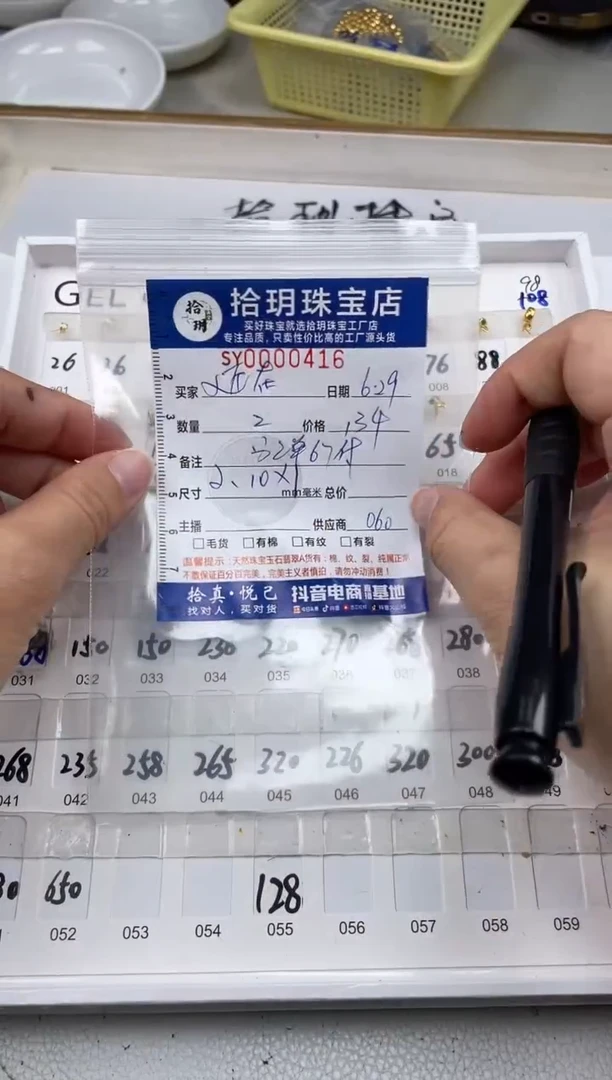 98
108
GEL
拾玥
拾玥珠宝店
买好珠宝就选拾玥珠宝工厂店
专注品质,只卖性价比高的工厂源头货
SY0000416
26 26 76 88
008
买家 日期 6.29
数量 2 价格 134
65
018
备注
尺寸 2.10 mm毫米 总价
主播 供应商 060
毛货 有棉 有纹 有裂
温馨提示:天然珠宝玉石翡翠A货有:棉、纹、裂,纯属正常
不敢保证百分百完美,完美主义者慎拍,请勿冲动消费!
拾真·悦己 抖音电商直播基地
找对人,买对货
022
150 150 230 220 270 265 280
031 032 033 034 035 036 037 038
268 235 258 265 320 226 320 300
041 042 043 044 045 046 047 048 049
650 128
052 053 054 055 056 057 058 059